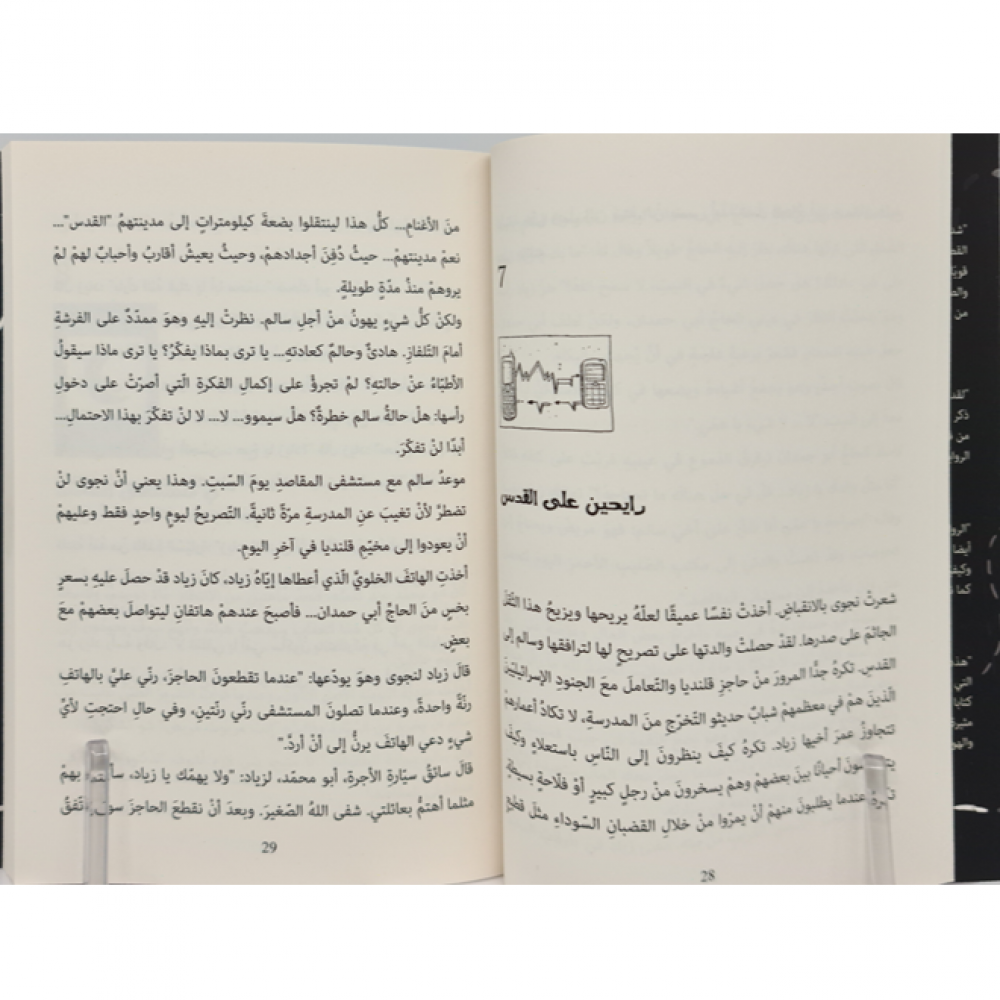 7
رايحين على القدس
شعرتْ نجوى بالانقباضِ. أخذتْ نفسًا عميقًا لعلّهُ يريحها ويزيحُ هذا الثّقلَ
الجاثمَ على صدرها. لقدْ حصلتْ والدتها على تصريحٍ لها لترافقها وسالم إلى
القدسِ. تكرهُ جدًّا المرورَ منْ حاجزِ قلنديا والتّعاملَ معَ الجنودِ الإسرائيليّينَ
الّذينَ همْ في معظمهمْ شبابٌ حديثو التّخرّجِ منَ المدرسةِ، لا تكادُ أعمارهمْ
تتجاوزُ عمرَ أخيها زياد. تكرهُ كيفَ ينظرونَ إلى النّاسِ باستعلاءٍ وكيفَ
أحيانًا بينَ بعضهمْ وهمْ يسخرونَ منْ رجلٍ كبيرٍ أوْ فلاحةٍ بسيطةٍ
عندما يطلبونَ منهمْ أنْ يمرّوا منْ خلالِ القضبانِ السّوداءِ مثلَ قطيعٍ
28
منَ الأغنامِ... كلُّ هذا لينتقلوا بضعةَ كيلومتراتٍ إلى مدينتهمُ "القدس"...
نعمْ مدينتهمْ... حيثُ دُفِنَ أجدادهمْ، وحيثُ يعيشُ أقاربُ وأحبابٌ لهمْ لمْ
يروهمْ منذُ مدّةٍ طويلةٍ.
ولكنْ كلُّ شيءٍ يهونُ منْ أجلِ سالم. نظرتْ إليهِ وهوَ ممدّدٌ على الفرشةِ
أمامَ التّلفازِ. هادئٌ وحالمٌ كعادتهِ... يا ترى بماذا يفكّرُ؟ يا ترى ماذا سيقولُ
الأطبّاءُ عنْ حالتهِ؟ لمْ تجرؤْ على إكمالِ الفكرةِ الّتي أصرّتْ على دخولِ
رأسها: هلْ حالةُ سالم خطرةٌ؟ هلْ سيموو... لا... لا لنْ تفكّرَ بهذا الاحتمالِ...
أبدًا لنْ تفكّرَ.
موعدُ سالم مع مستشفى المقاصدِ يومَ السّبتِ. وهذا يعني أنَّ نجوى لنْ
تضطرَّ لأنْ تغيبَ عنِ المدرسةِ مرّةً ثانيةً. التّصريحُ ليومٍ واحدٍ فقط وعليهمْ
أنْ يعودوا إلى مخيّمِ قلنديا في آخرِ اليومِ.
أخذتِ الهاتفَ الخلويَّ الّذي أعطاها إيّاهُ زياد، كانَ زياد قدْ حصلَ عليهِ بسعرٍ
بخسٍ منَ الحاجّ أبي حمدان... فأصبحَ عندهمْ هاتفانِ ليتواصلَ بعضهمْ معَ
بعضٍ.
قالَ زياد لنجوى وهوَ يودّعها: "عندما تقطعونَ الحاجزَ، رنّي عليَّ بالهاتفِ
رنّةً واحدةً، وعندما تصلونَ المستشفى رنّي رنّتينِ، وفي حالِ احتجتِ لأيّ
شيءٍ دعي الهاتفَ يرنُّ إلى أنْ أردَّ."
قالَ سائقُ سيّارةِ الأجرةِ، أبو محمّد، لزياد: "ولا يهمّك يا زياد، سأهتمُّ بهمْ
مثلما أهتمُّ بعائلتي. شفى اللهُ الصّغيرَ. وبعدَ أنْ نقطعَ الحاجزَ سوفَ نتّفقُ
29